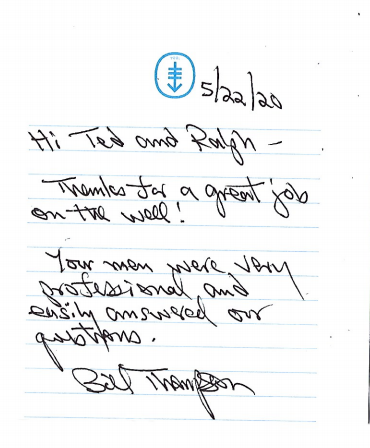 5/22/20
Hi Ted and Ralph -
Thanks for a great job
on the well!
Your men were very
professional and
easily answered our
questions.
Bill Thompson